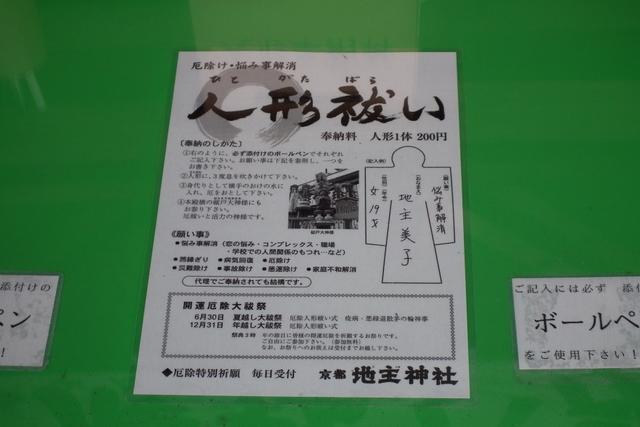 厄除け・悩み事解消
ひと がた ばら
人形祓い
奉納料 人形1体 200円
〔奉納のしかた〕
①右のように、必ず添付けのボールペンでそれぞれ
ご記入下さい。お願い事は下記を参照し、一つを
お書き下さい。
②人形に、3度息を吹きかけて下さい。
③身代りとして横手のおけの水に
入れ、厄をおとして下さい。
④本殿横の祓戸大神様にも
お参り下さい。
厄祓いと活力の神様です。
祓戸大神様
(記入例)
(願い事)
悩み事解消
(おなまえ)
地主美子
(性別)
女 19才
《願い事》
●悩み事解消(恋の悩み・コンプレックス・職場
・学校での人間関係のもつれ…など)
●悪縁ぎり ●病気回復 ●厄除け
●災難除け ●事故除け ●悪運除け ●家庭不和解消
代理でご奉納されても結構です。
開運厄除大祓祭
6月30日 夏越し大祓祭 厄除人形祓い式 疫病・悪縁退散茅の輪神事
12月31日 年越し大祓祭 厄除人形祓い式
祭典3時 年の節目に皆様の開運厄除を祈願するお祭りです。
ご自由にご参加下さい。(参加無料)
なお、お祭りへのお供えは受付までお越し下さい。
◆厄除特別祈願 毎日受付 京都 地主神社
添付けの
ペン
!
ご記入には必ず 添付
ボールペ
をご使用下さい!